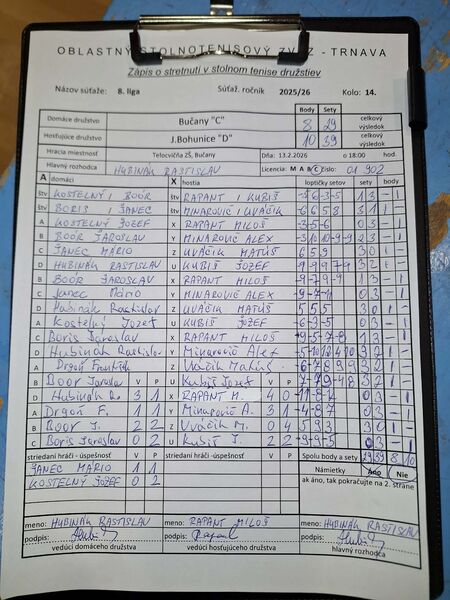 OBLASTNÝ STOLNOTENISOVÝ ZVÄZ - TRNAVA
Zápis o stretnutí v stolnom tenise družstiev
Názov súťaže: 8. liga Súťaž. ročník 2025/26 Kolo: 14.
Body Sety
Domáce družstvo Bučany "C" 8 29 celkový výsledok
Hosťujúce družstvo J.Bohunice "D" 10 39 celkový výsledok
Hracia miestnosť Telocvičňa ZŠ, Bučany Dňa: 13.2.2026 o 18:00 hod.
Hlavný rozhodca HUBINÁK RASTISLAV Licencia: M A B C číslo: 01 902
A domáci X hostia loptičky setov sety body
štv KOSTELNÝ / BOOR štv RAPANT / KUBIŠ 1 3 - 1
štv BORIS / ŠANEC štv MINAROVIČ / UVÁČIK 3 1 1 -
A KOSTELNÝ JOZEF X RAPANT MILOŠ -3-5-6 0 3 - 1
B BOOR JAROSLAV Y MINAROVIČ ALEX 2 3 - 1
C ŠANEC MÁRIO Z UVÁČIK MATÚŠ 6 5 9 3 0 1 -
D HUBINÁK RASTISLAV U KUBIŠ JOZEF 3 2 1 -
B BOOR JAROSLAV X RAPANT MILOŠ 1 3 - 1
C Šanec Mário Y MINAROVIČ ALEX 0 3 - 1
D Hubinák Rastislav Z UVÁČIK MATÚŠ 5 5 5 3 0 1 -
A Kostelný Jozef U KUBIŠ JOZEF -6-3-5 0 3 - 1
C Boris Jaroslav X RAPANT MILOŠ 1 3 - 1
D Hubinák Rastislav Y Minarovič Alex 3 2 1 -
A Drgoň František Z Uváčik Matúš 3 2 1 -
B Boor Jaroslav V P U Kubiš Jozef V P 2 3 - 1
D Hubinák R. 3 1 X RAPANT M. 4 0 1 3 - 1
A Drgoň F. 1 1 Y Minarovič A. 3 1 0 3 - 1
B Boor J. 2 2 Z Uváčik M. 0 4 5 9 3 3 0 1 -
C Boris Jaroslav 0 2 U Kubiš J. 2 2 -9-9-5 0 3 - 1
striedaní hráči - úspešnosť V P striedaní hráči - úspešnosť V P Spolu body a sety 29 39 8 10
ŠANEC MÁRIO 1 1 Námietky Áno Nie
KOSTELNÝ JOZEF 0 2 ak áno, tak pokračujte na 2. strane
meno: HUBINÁK RASTISLAV meno: RAPANT MILOŠ meno: HUBINÁK RASTISLAV
podpis: podpis: Rapant podpis:
vedúci domáceho družstva vedúci hosťujúceho družstva hlavný rozhodca